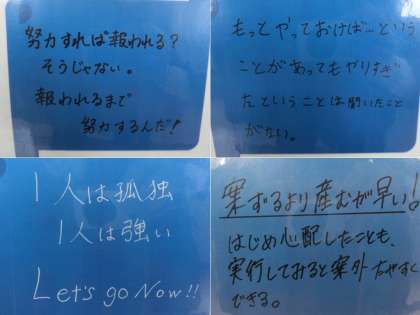 努力すれば報われる?
そうじゃない。
報われるまで
努力するんだ!
もっとやっておけば…という
ことがあってもやりすぎ
たということは聞いたこと
がない。
1人は孤独
1人は強い
Let's go Now!!
案ずるより産むが早い!
はじめ心配したことも、
実行してみると案外たやすく
できる。